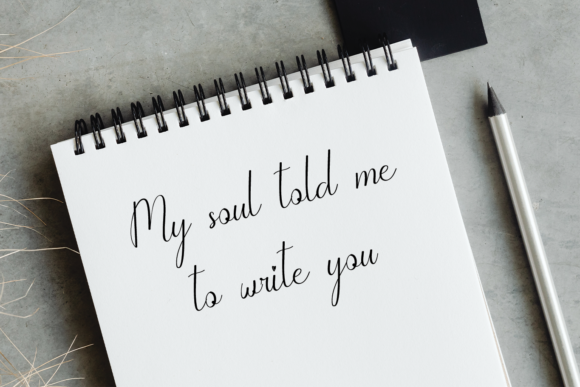 My soul told me
to write you